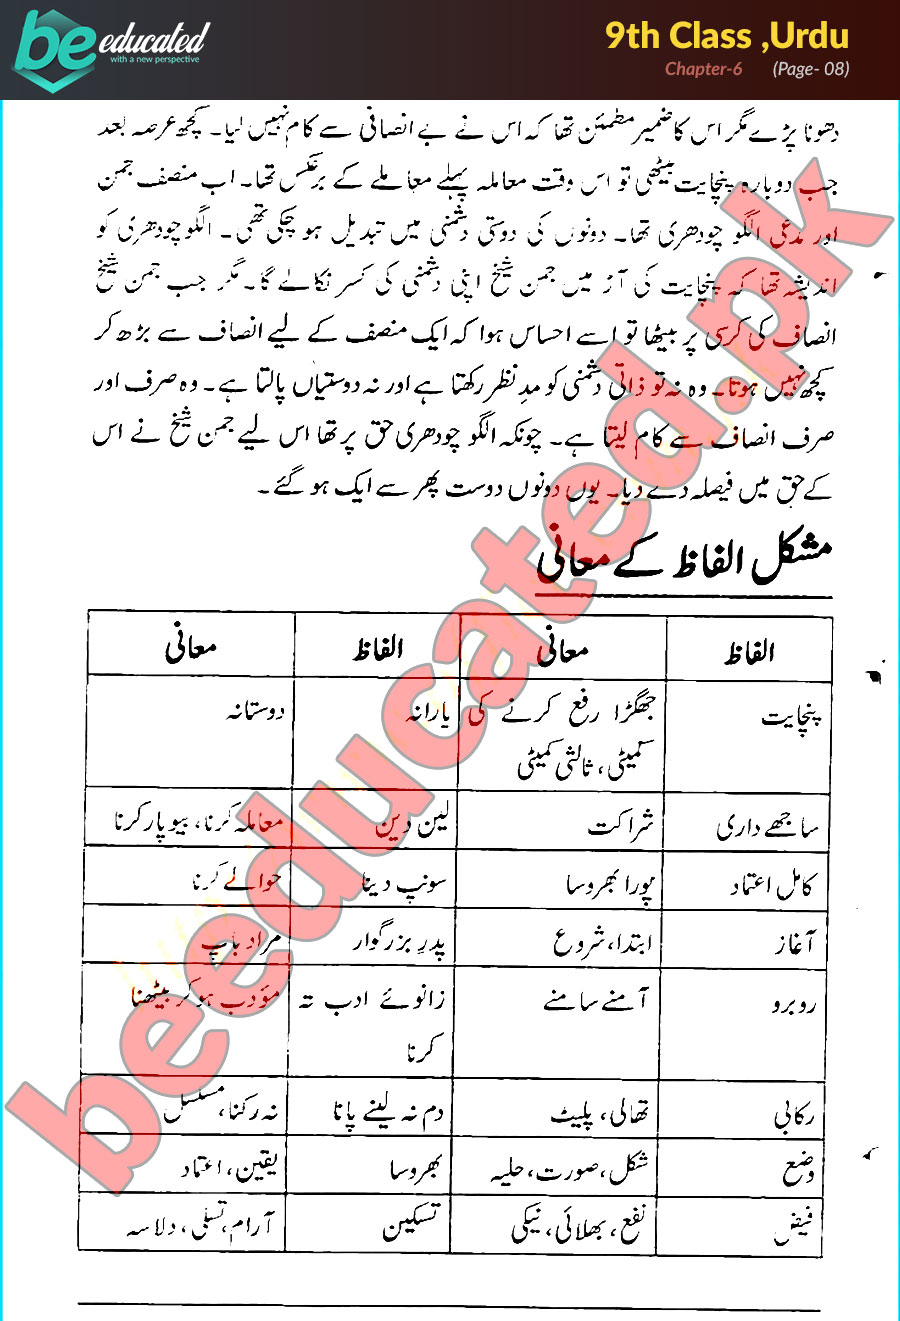 be educated
with a new perspective
9th Class ,Urdu
Chapter-6 (Page- 08)
دھونا پڑے مگر اس کا ضمیر مطمئن تھا کہ اس نے بے انصافی سے کام نہیں لیا۔ کچھ عرصہ بعد
جب دوبارہ پنچایت بیٹھی تو اس وقت معاملہ پہلے معاملے کے برعکس تھا۔ اب منصف جمن
اور مدعی الگو چودھری تھا۔ دونوں کی دوستی دشمنی میں تبدیل ہو چکی تھی۔ الگو چودھری کو
اندیشہ تھا کہ پنچایت کی آڑ میں جمن شیخ اپنی دشمنی کی کسر نکالے گا۔ مگر جب جمن شیخ
انصاف کی کرسی پر بیٹھا تو اسے احساس ہوا کہ ایک منصف کے لیے انصاف سے بڑھ کر
کچھ نہیں ہوتا۔ وہ نہ تو ذاتی دشمنی کو مدِ نظر رکھتا ہے اور نہ دوستیاں پالتا ہے۔ وہ صرف اور
صرف انصاف سے کام لیتا ہے۔ چونکہ الگو چودھری حق پر تھا اس لیے جمن شیخ نے اس
کے حق میں فیصلہ دے دیا۔ یوں دونوں دوست پھر سے ایک ہو گئے۔
مشکل الفاظ کے معانی
الفاظ معانی الفاظ معانی
پنچایت جھگڑا رفع کرنے کی یارانہ دوستانہ
کمیٹی، ثالثی کمیٹی
ساجھے داری شراکت لین دین معاملہ کرنا، بیوپار کرنا
کامل اعتماد پورا بھروسا سونپ دینا حوالے کرنا
آغاز ابتدا، شروع پدرِ بزرگوار مراد باپ
روبرو آمنے سامنے زانوئے ادب تہ مؤدب ہو کر بیٹھنا
کرنا
رکابی تھالی، پلیٹ دم نہ لینے پانا نہ رکنا، مسلسل
وضع شکل، صورت، حلیہ بھروسا یقین، اعتماد
فیض نفع، بھلائی، نیکی تسکین آرام، تسلی، دلاسہ
beeducated.pk